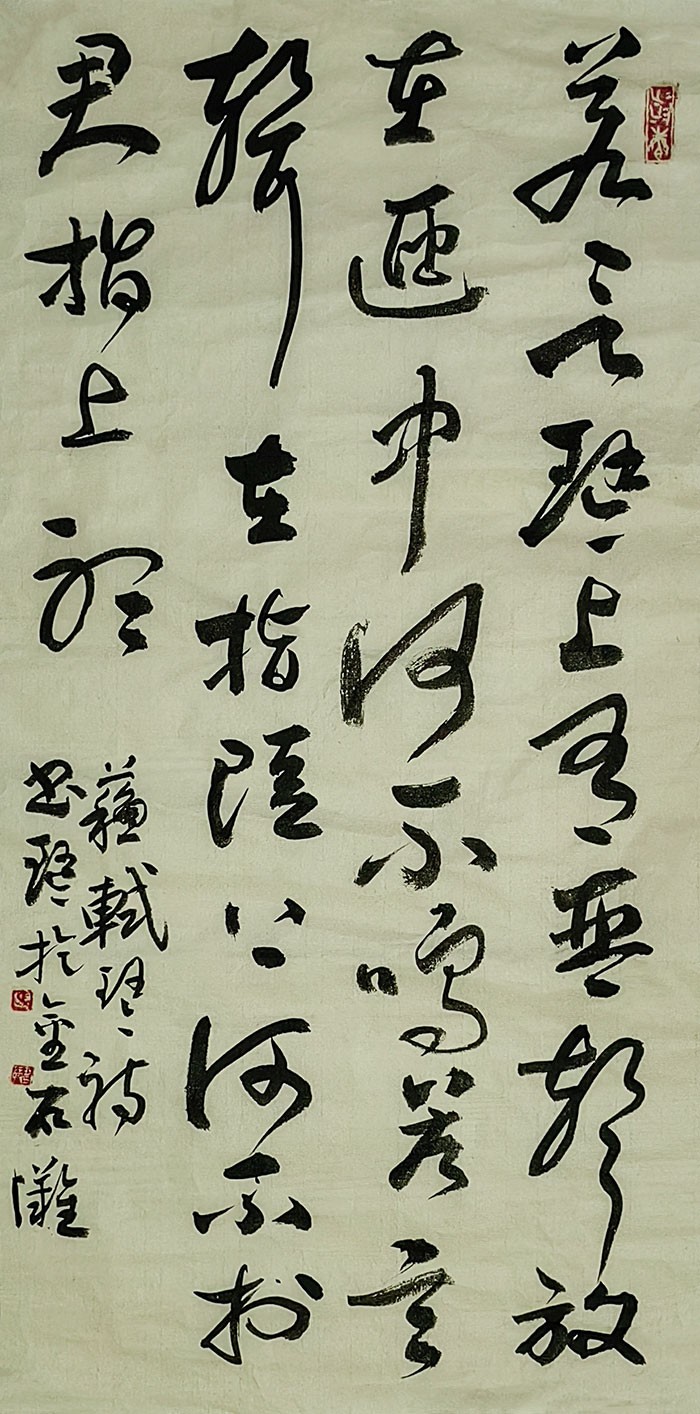 若言琴上有琴聲放
在匣中何不鳴若言
聲在指頭上何不於
君指上聽
蘇軾琴詩
书琴於金石灘